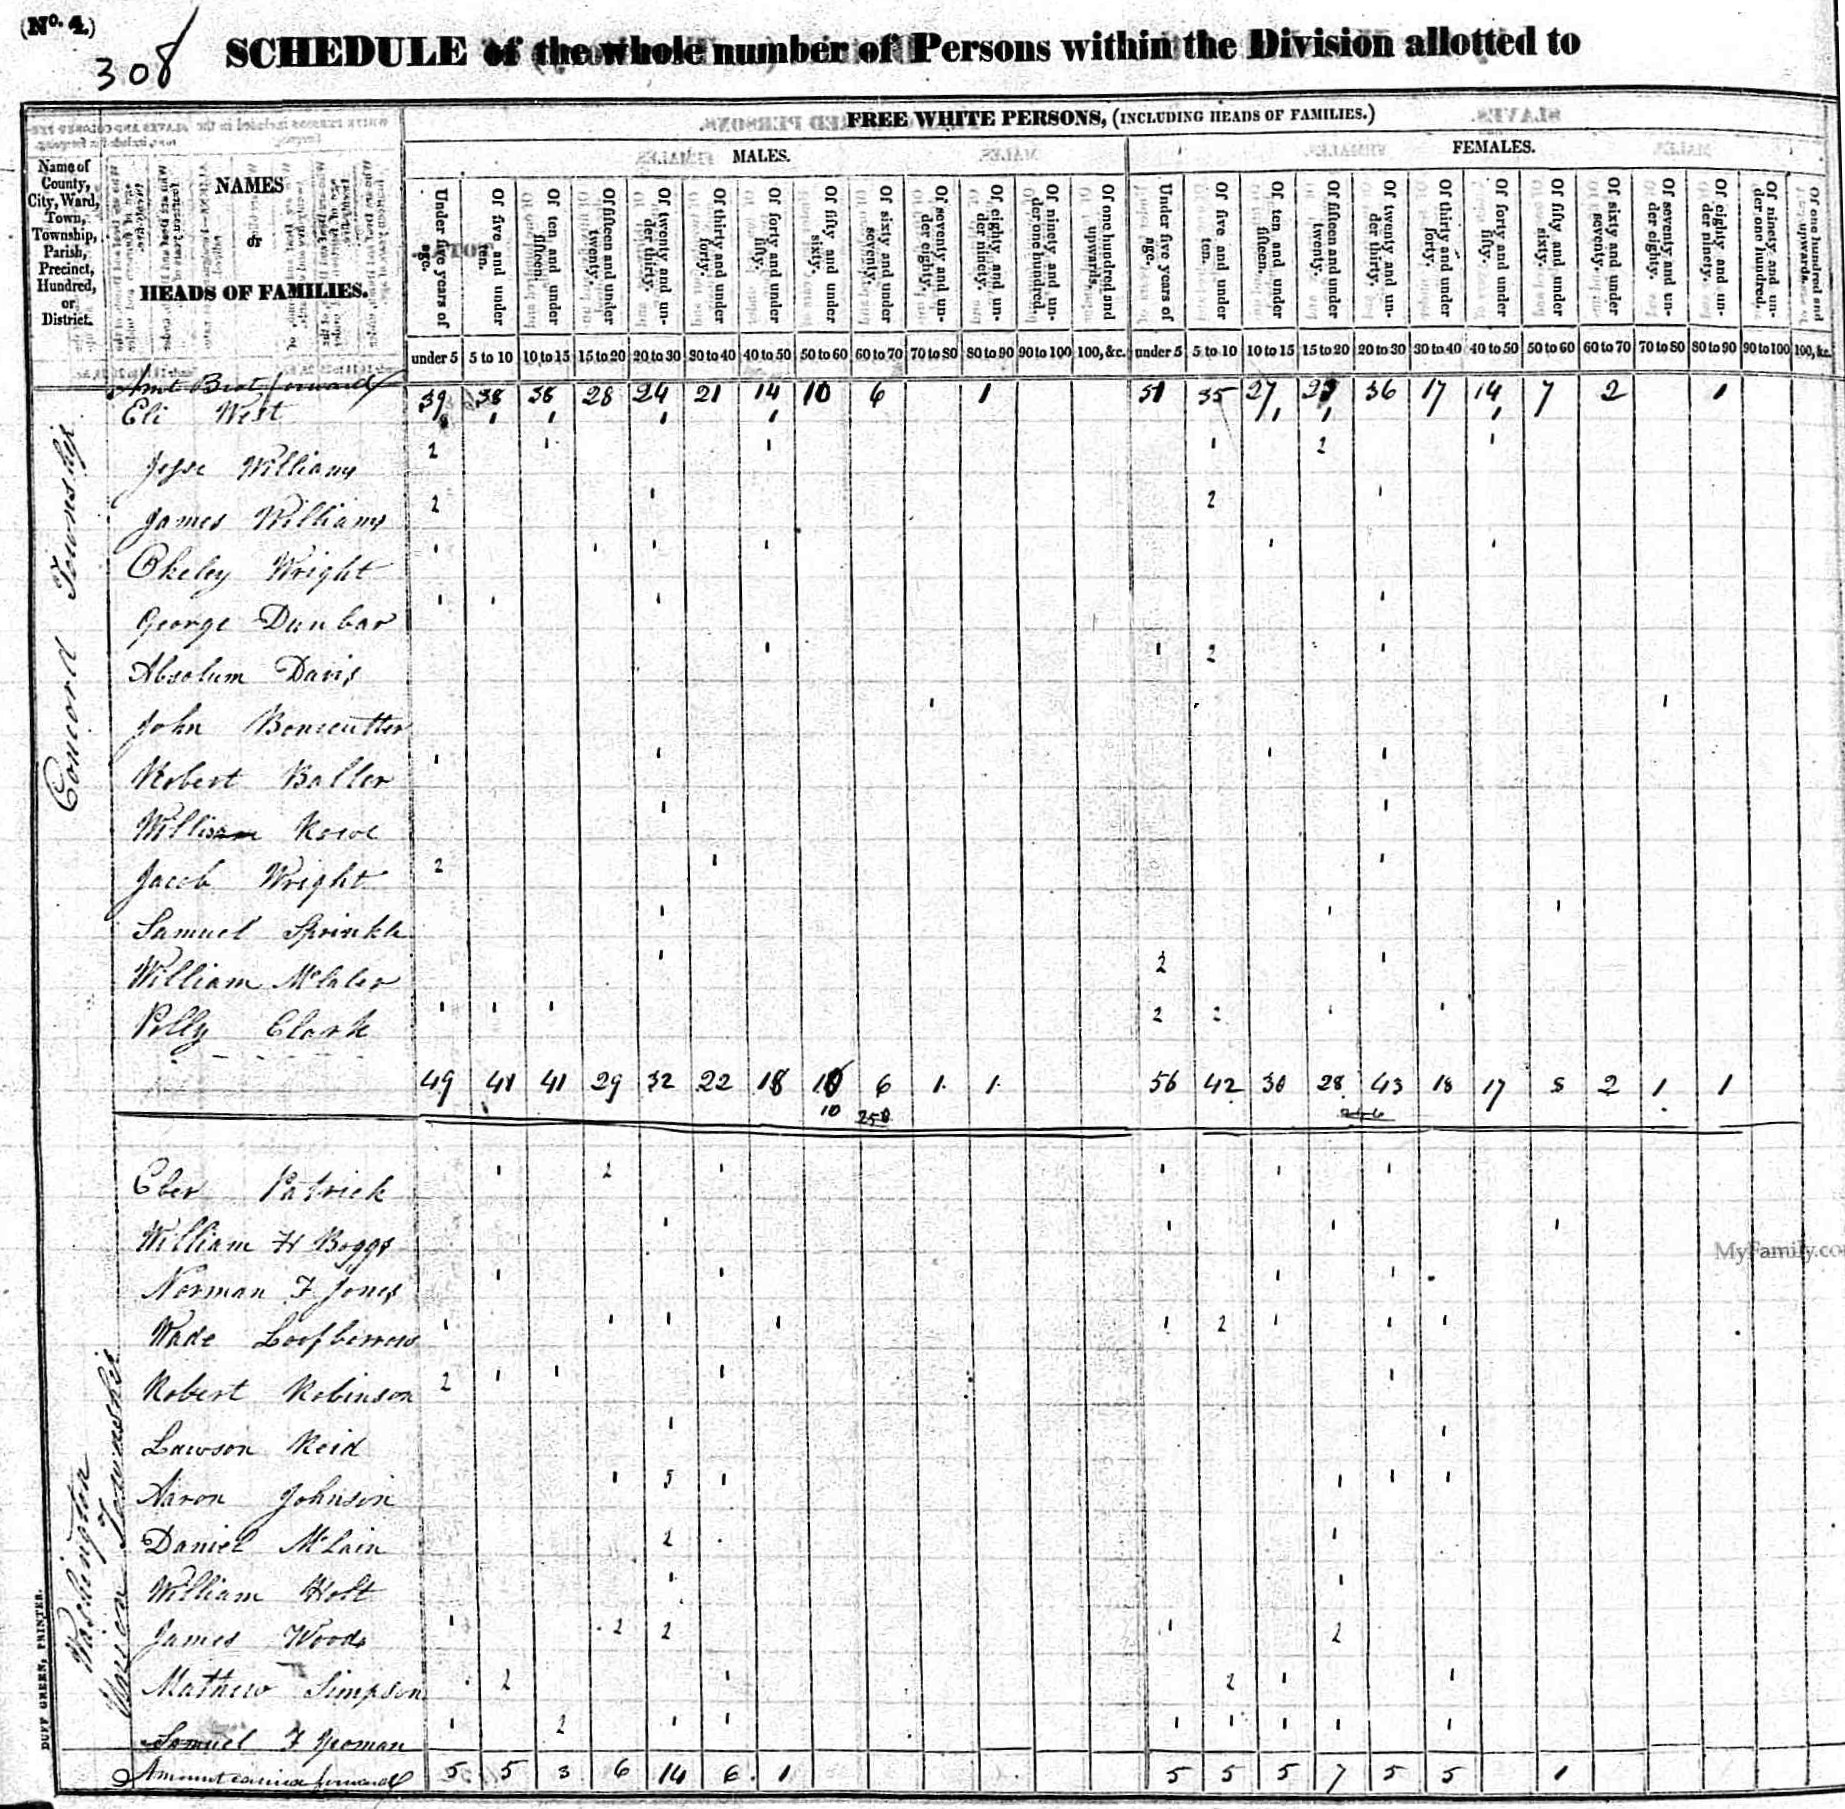 (No. 4.)
308
SCHEDULE of the whole number of Persons within the Division allotted to
FREE WHITE PERSONS, (INCLUDING HEADS OF FAMILIES.)
MALES. FEMALES.
Name of County, City, Ward, Town, Township, Parish, Precinct, Hundred, or District.
NAMES
or
HEADS OF FAMILIES.
Under five years of age. Of five and under ten. Of ten and under fifteen. Of fifteen and under twenty. Of twenty and under thirty. Of thirty and under forty. Of forty and under fifty. Of fifty and under sixty. Of sixty and under seventy. Of seventy and under eighty. Of eighty and under ninety. Of ninety and under one hundred. Of one hundred and upwards. Under five years of age. Of five and under ten. Of ten and under fifteen. Of fifteen and under twenty. Of twenty and under thirty. Of thirty and under forty. Of forty and under fifty. Of fifty and under sixty. Of sixty and under seventy. Of seventy and under eighty. Of eighty and under ninety. Of ninety and under one hundred. Of one hundred and upwards.
under 5 5 to 10 10 to 15 15 to 20 20 to 30 30 to 40 40 to 50 50 to 60 60 to 70 70 to 80 80 to 90 90 to 100 100, &c. under 5 5 to 10 10 to 15 15 to 20 20 to 30 30 to 40 40 to 50 50 to 60 60 to 70 70 to 80 80 to 90 90 to 100 100, &c.
Amt Brot forward 39 38 38 28 24 21 14 10 6 1 51 35 27 36 17 14 7 2 1
Concord Township
Eli West 1 1 1 1 1 1 1
Jesse Williams 2 1 1 1 2 1
James Williams 2 1 2 1
Okeley Wright 1 1 1 1 1 1
George Dunbar 1 1 1 1
Absolum Davis 1 1 2 1
John Bonecutter 1 1
Robert Baller 1 1 1 1
William Rowe 1 1
Jacob Wright 2 1 1
Samuel Sprinkle 1 1 1
William 1 2 1
Polly Clark 1 1 1 2 2 1 1
49 41 41 29 32 22 18 10 6 1 1 56 42 30 28 43 18 17 8 2 1 1
10 258
Eber Patrick 1 2 1 1 1 1
William H Boggs 1 1 1 1
Norman F Jones 1 1 1 1
Wade Loofberrow 1 1 1 1 1 2 1 1 1
Robert Robinson 2 1 1 1 1
Lawson Reid 1 1
Aaron Johnson 1 5 1 1 1 1
Daniel McLain 2 1
William Holt 1 1
James Woods 1 2 2 1 2
Mathew Simpson 2 1 2 1 1
Samuel F Yeoman 1 2 1 1 1 1 1 1 1
Washington
Union Township
Amount carried forward 5 5 3 6 14 6 1 5 5 5 7 5 5 1
DUFF GREEN, PRINTER.
MyFamily.co